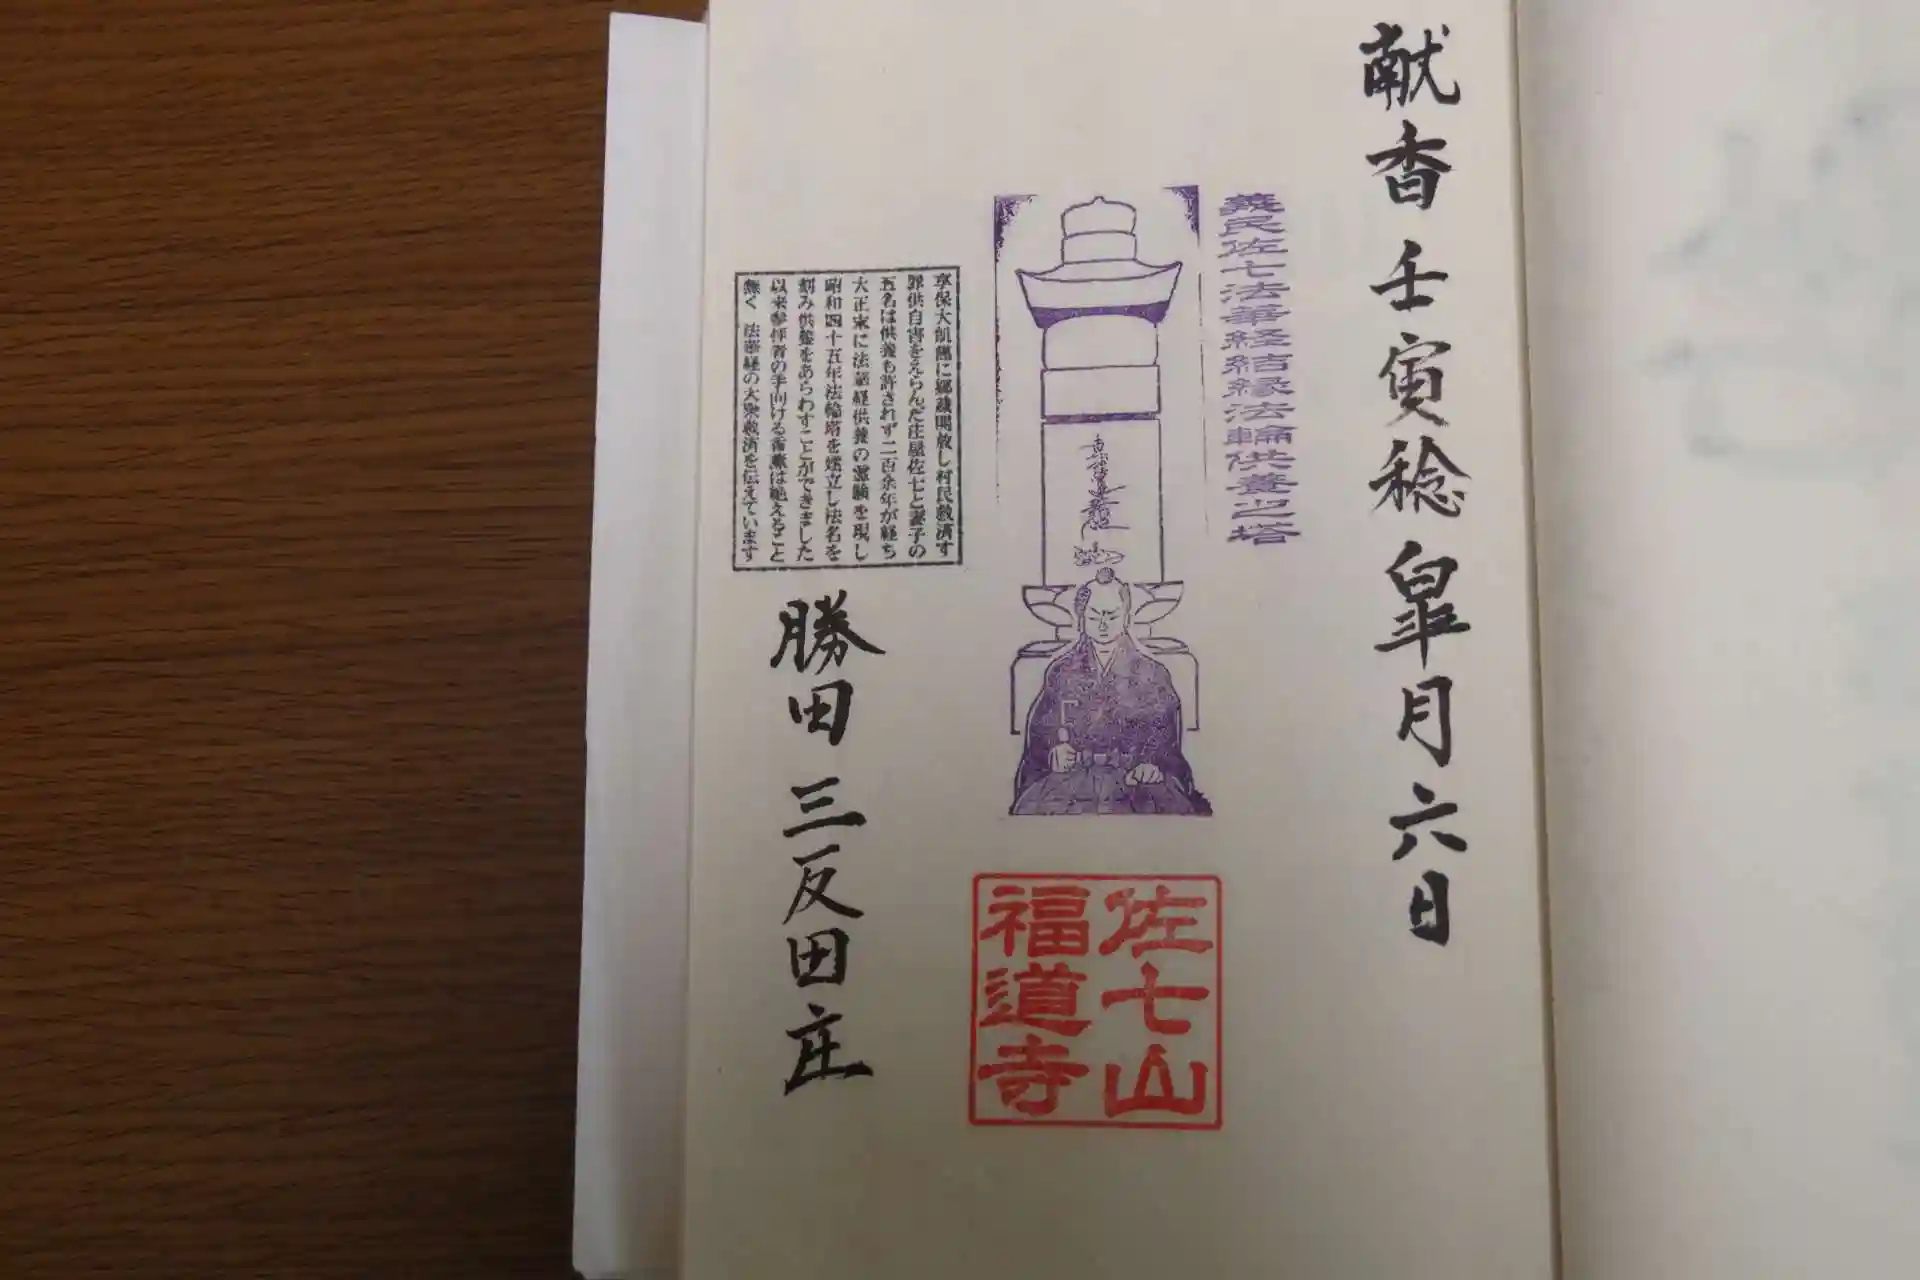 献香 壬寅稔皐月六日
義民佐七法華経結縁法輪供養之塔
佐七山
福道寺
享保大飢饉に郷蔵開放し村民救済す
罪供自害をえらんだ庄屋佐七と妻子の
五名は供養も許されず二百余年が経ち
大正末に法華経供養の霊験を現し
昭和四十五年法輪塔を建立し法名を
刻み供養をあらわすことができました
以来参拝者の手向ける香薫は絶えること
無く 法華経の大衆救済を伝えています
勝田 三反田庄